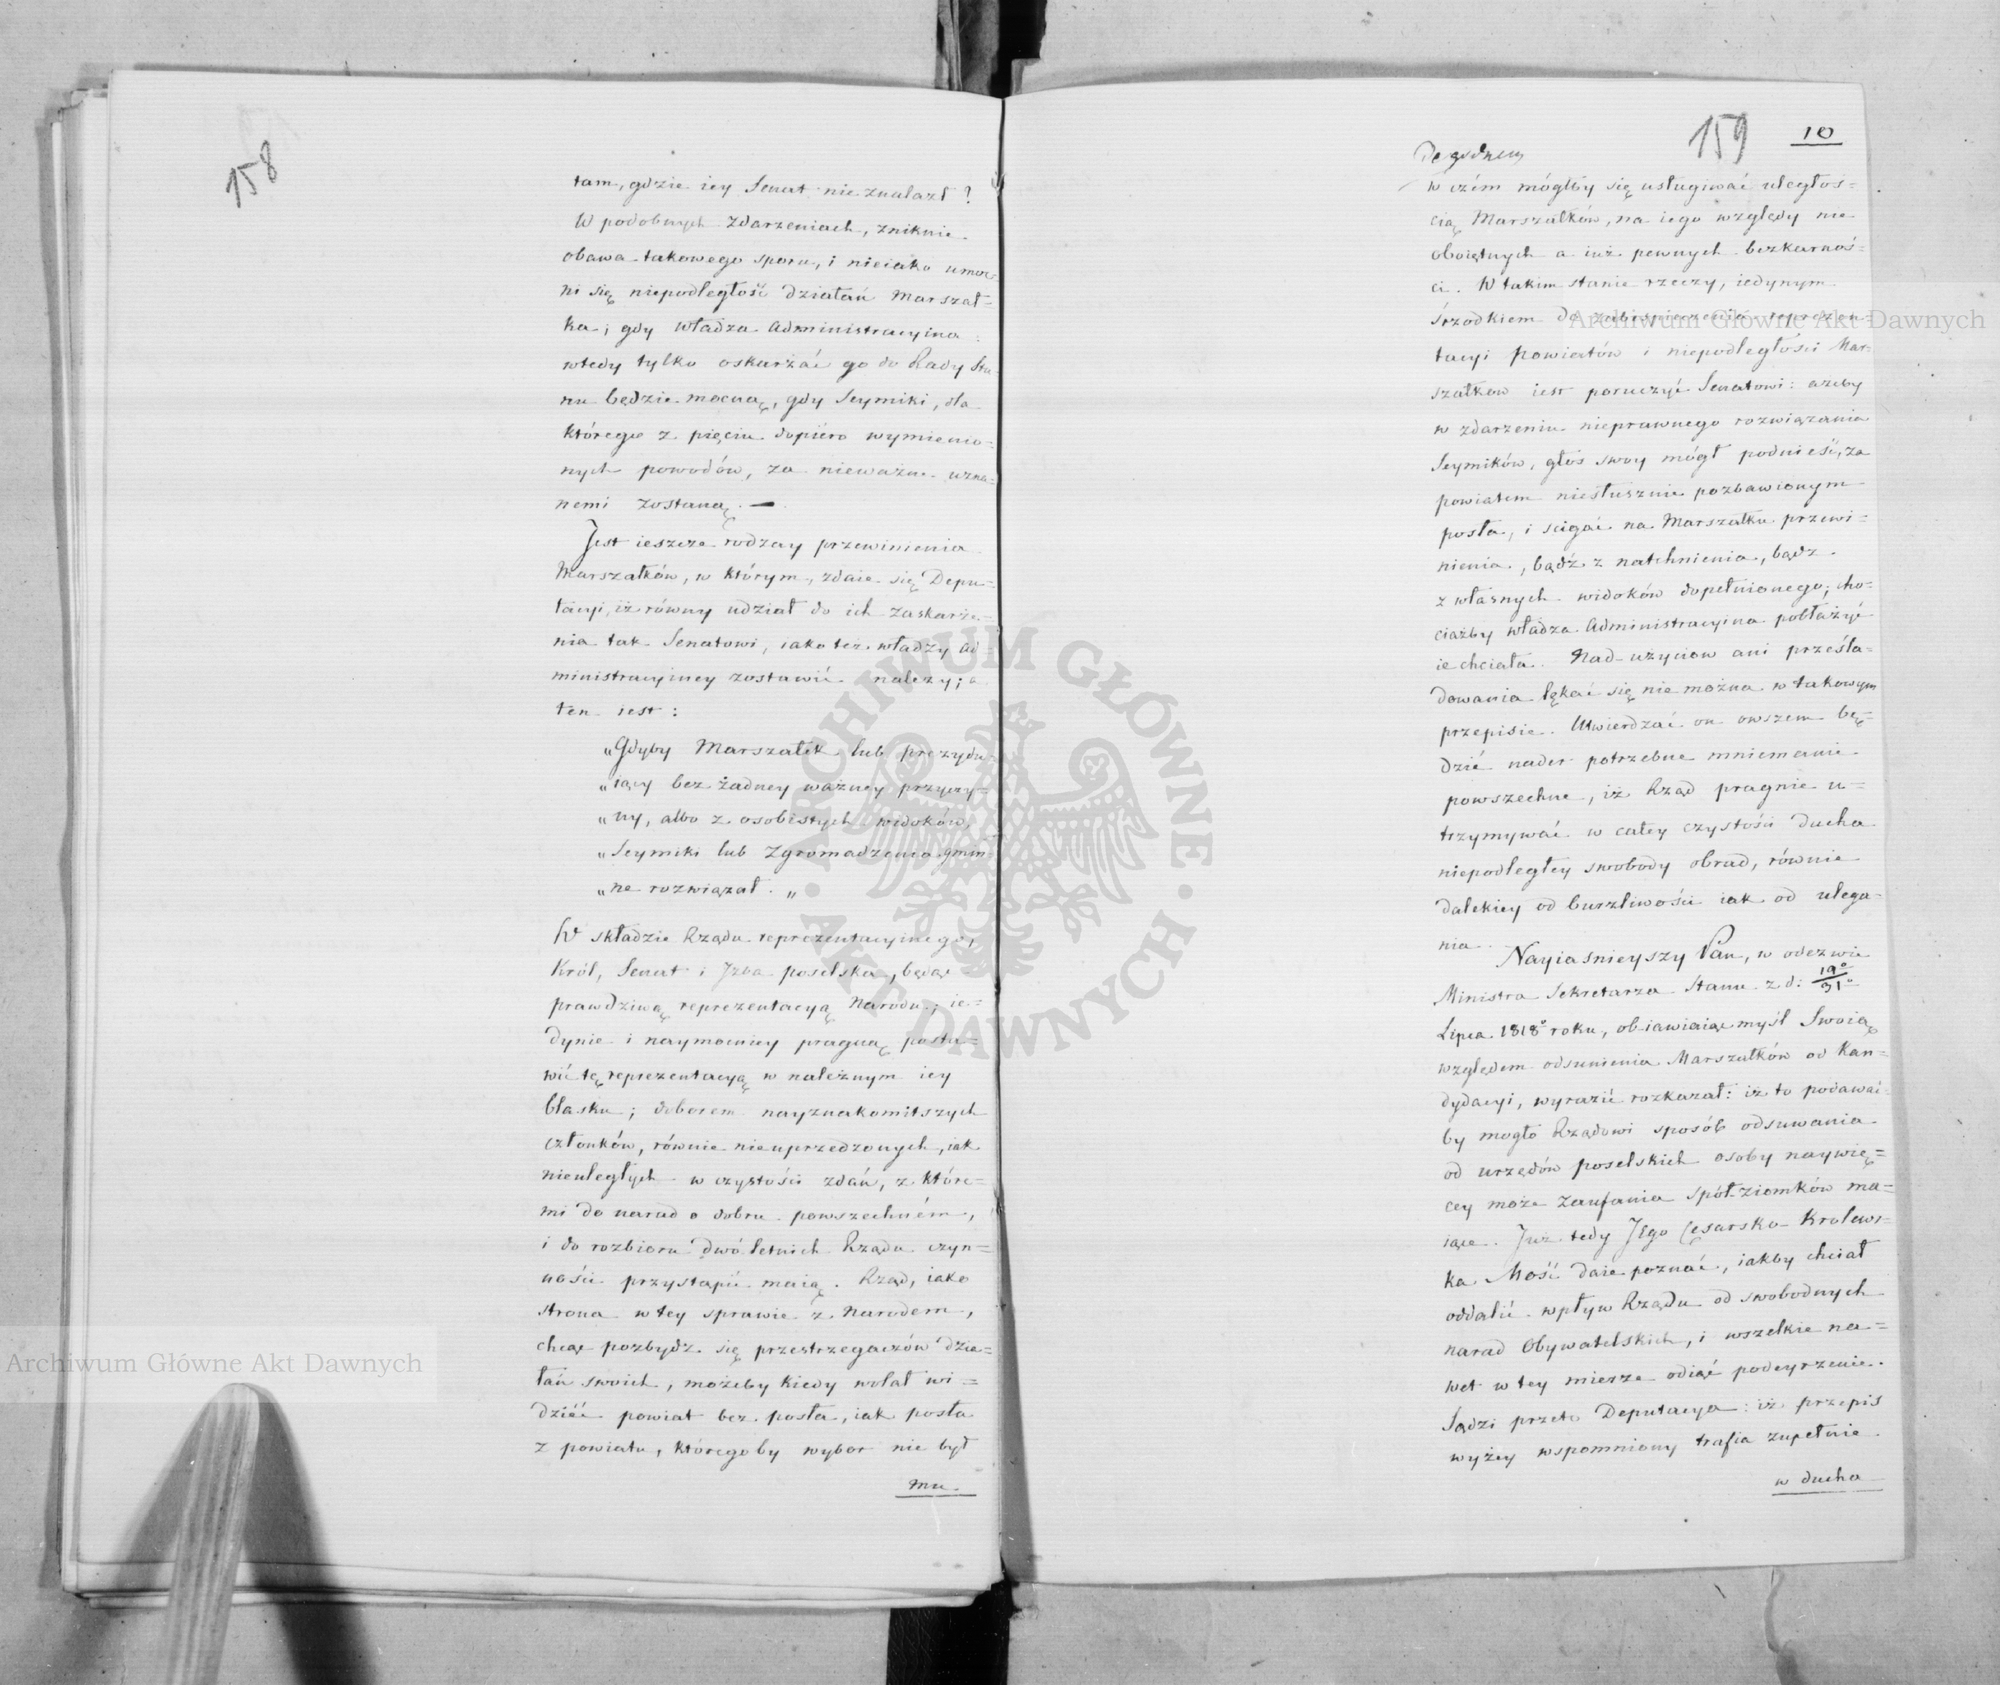 158
tam, gdzie iey Senat nie znalazł?
W podobnych zdarzeniach, zniknie
obawa takowego sporu, i nieiako umoc-
ni się niepodległość działań Marszał-
ka; gdy władza Administracyina
wtedy tylko oskarżać go do Rady Sta-
nu będzie mocną, gdy Seymiki, dla
któregoś z pięciu dopiéro wymienio-
nych powodów, za nieważne uzna-
nemi zostaną. —
Jest ieszcze rodzay przewinienia
Marszałków, w którym, zdaie się Depu-
tacyi, iż równy udział do ich zaskarże-
nia tak Senatowi, iako też władzy Ad-
ministracyiney zostawić należy; a
ten iest:
„Gdyby Marszałek lub prezydu-
„iący bez żadney ważney przyczy-
„ny, albo z osobistych widoków,
„Seymiki lub Zgromadzenia gmin-
„ne rozwiązał. „
W składzie Rządu reprezentacyinego,
Król, Senat i Izba poselska, będąc
prawdziwą reprezentacyą Narodu, ie-
dynie i naymocniey pragną posta-
wić tę reprezentacyą w należnym iey
blasku; doborem nayznakomitszych
członków, równie nieuprzedzonych, iak
nieuległych w czystości zdań, z które-
mi do narad o dobru powszechném,
i do rozbioru dwóletnich Rządu czyn-
ności przystąpić maią. Rząd, iako
strona w tey sprawie z Narodem,
chcąc pozbydź się przestrzegaczów dzia-
łań swoich, możeby kiedy wolał wi-
dzićć powiat bez posła, iak posła
z powiatu, któregoby wybor nie był
mu
159
10
w czém mógłby się usługiwać uległoś-
cią Marszałków, na iego względy nie
oboiętnych a iuż pewnych bezkarnoś-
ci. W takim stanie rzeczy, iedynym
śrzodkiem do zabespieczenia reprezen-
tacyi powiatów i niepodległości Mar-
szałkow iest poruczyć Senatowi: ażeby
w zdarzeniu nieprawnego rozwiązania
Seymików, głos swoy mógł podnieść, za
powiatem niesłusznie pozbawionym
posła, i scigać na Marszałku przewi-
nienia, bądź z natchnienia, bądz
z własnych widoków dopełnionego; cho-
ciażby władza Administracyina pobłażyć
ie chciała. Nad-użyciow ani prześla-
dowania lękać się nie można w takowym
przepisie. Utwierdzać on owszem bę-
dzie nader potrzebne mniemanie
powszechne, iż Rząd pragnie u-
trzymywać w całey czystości ducha
niepodległey swobody obrad, równie
dalekiey od burzliwości iak od ulega-
nia.
Nayiasnieyszy Pan, w odezwie
Ministra Sekretarza Stanu z d: 19°/31°
Lipca 1818° roku, obiawiaiąc myśl Swoią
względem odsunienia Marszałków od Kan-
dydacyi, wyrazić rozkazał: iż to podawać-
by mogło Rządowi sposób odsuwania
od urzędów poselskich osoby naywię-
cey może zaufania spół-ziomków ma-
iące. Już tedy Jego Cesarsko-Krolews-
ka Mość daie poznać, iakby chciał
oddalić wpływ Rządu od swobodnych
narad Obywatelskich, i wszelkie na-
wet w tey mierze odiąć podeyrzenie.
Sądzi przeto Deputacya: iż przepis
wyżey wspomniony trafia zupełnie
w ducha
Archiwum Główne Akt Dawnych
Archiwum Główne Akt Dawnych
ARCHIWUM GŁÓWNE
AKT DAWNYCH